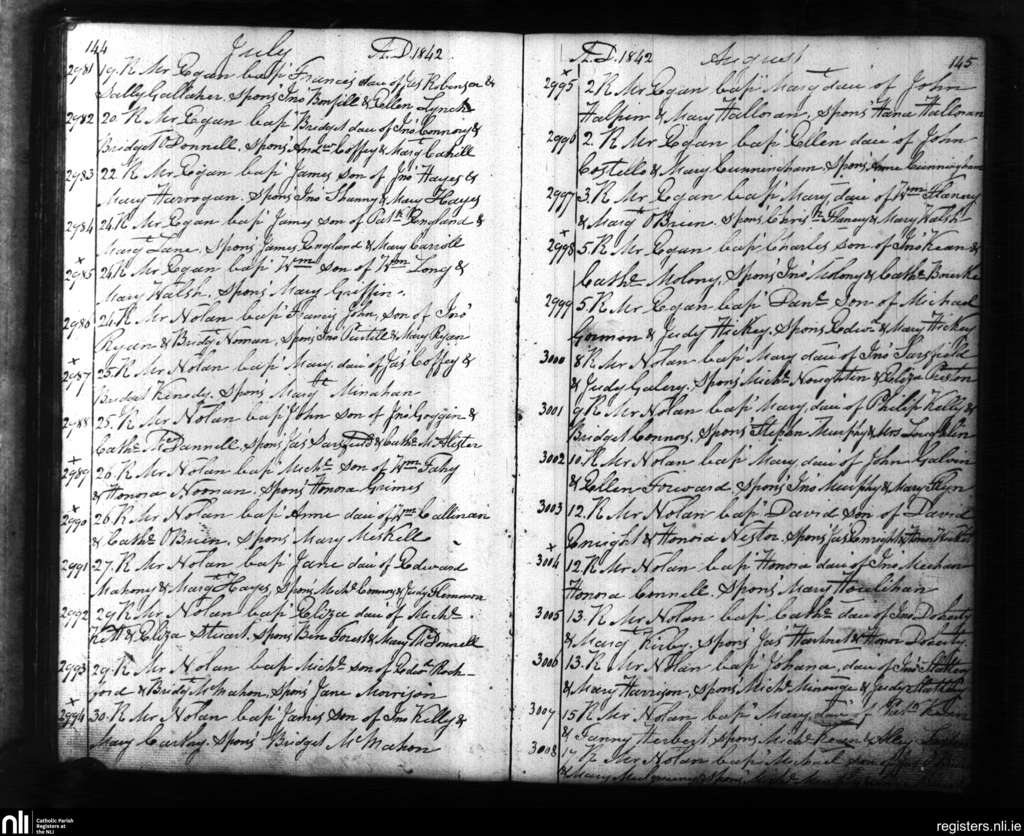 144 July A.D. 1842
2981 19. R Mr Egan bapd Francis dau of Jas Robinson &
Sally Gallaher. Spons Jno Bonfill & Ellen Lynch
2982 20. R Mr Egan bapd Bridget dau of Jno Connory &
Bridget O'Donnell. Spons Andw Coffey & Margt Cahill
2983 22 R Mr Egan bapd James son of Jno Hayes &
Mary Harrogan. Spons Jno Shanny & Mary Hayes
2984 24 R Mr Egan bapd James son of Patk England &
Margt Lane. Spons James England & Mary Carroll
x
2985 24 R Mr Egan bapd Wm son of Wm Long &
Mary Walsh. Spons Mary Griffin.
2986 24 R Mr Nolan bapd Francis John, son of Jno
Ryan & Bridgt Noman. Spons Jno Purtill & Mary Ryan
x
2987 25 R Mr Nolan bapd Mary dau of Jas Coffey &
Bridget Kenedy. Spons Margt Minahan
2988 25. R Mr Nolan bapd John son of Jno Goggin &
Cathe McDannell. Spons Jas Sarsfield & Cathe McAlister
x
2989 26 R Mr Nolan bapd Michl son of Wm Fahy
& Honora Noonan. Spons Honora Grimes
x
2990 26 R Mr Nolan bapd Anne dau of Wm Callinan
& Cathe O'Brien. Spons Mary Miskell
2991 27. R Mr Nolan bapd Jane dau of Edward
Mahony & Margt Hayes. Spons Michl Connors & Judy
2992 29 R Mr Nolan bapd Eliza dau of Michl
& Eliza Stuart. Spons Ben Forest & Mary McDonnell
2993 29 R Mr Nolan bapd Michl son of Edwd Roch-
ford & Bridgt McMahon. Spons Jane Morrison
x
2994 30 R Mr Nolan bapd James son of Jno Kelly &
Mary Spons Bridget McMahon
A.D. 1842 August 145
x
2995 2 R Mr Egan bapd Margt dau of John
Halpin & Mary Halloran. Spons Hana Halloran
2996 2. R Mr Egan bapd Ellen dau of John
Costello & Mary Cunningham. Spons Anne Cunningham
2997 3. R Mr Egan bapd Mary dau of Wm Flanery
& Margt O'Brien. Spons Flanery & Mary Walsh
x
2998 5. R Mr Egan bapd Charles son of Jno Kean &
Cathe Molony. Spons Jno Molony & Cathe Bourke
2999 5. R Mr Egan bapd Danl Son of Michael
Gorman & Judy Hickey. Spons Edwd & Mary Hickey
3000 8 R Mr Nolan bapd Mary dau of Jno Sarsfield
& Judy Galery. Spons Michl Noughtin & Eliza Preston
3001 9 R Mr Nolan bapd Mary, dau of Philip Kelly &
Bridget Connors. Spons Stephen Murphy & Mrs Loughlin
3002 10 R Mr Nolan bapd Mary dau of John Galvin
& Ellen Forward. Spons Jno Murphy & Mary Flyn
3003 12. R Mr Nolan bapd David son of David
Enright & Honora Nestor. Spons Jas Enright & Honor
x
3004 12 R Mr Nolan bapd Honora dau of Jno Meehan
Honora Connell. Spons Mary Houlihan
3005 13. R Mr Nolan bapd Cathe dau of Jno Doherty
& Margt Kirby. Spons Jas Hartnet & Honor Doherty
3006 13. R Mr Nolan bapd Johana, dau of Jno
& Mary Harrison. Spons Michl & Judy
3007 15 R Mr Nolan bapd Mary, dau of Patk
& Fanny Herbert. Spons Michl &
3008 17 R Mr Nolan bapd Michael son of
& Mary
nli Catholic Parish
Registers at
the NLI
registers.nli.ie